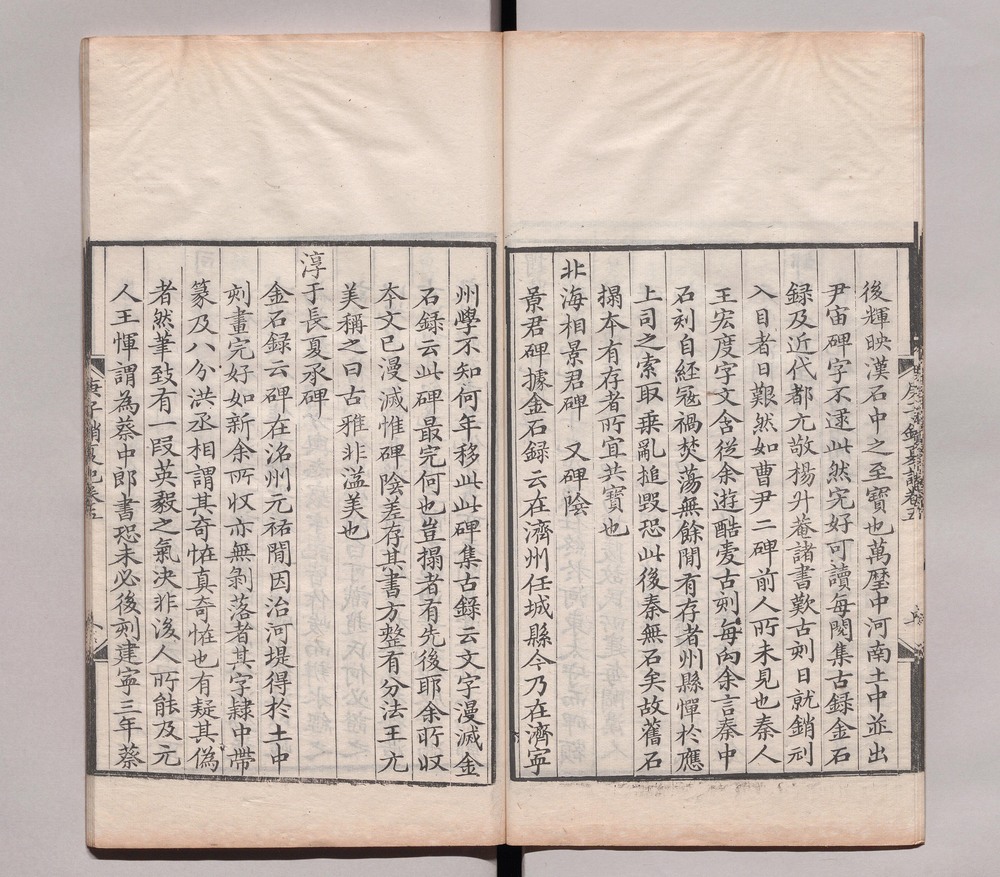 後輝映漢石中之至寶也萬歷中河南土中並出
尹宙碑字不逮此然完好可讀每閱集古録金石
録及近代都元敬楊升菴諸書歎古刻日就銷刓
入目者日艱然如曹尹二碑前人所未見也秦人
王宏度字文含從余遊酷愛古刻每向余言秦中
石刻自經宼禍焚蕩無餘閒有存者州縣憚於應
上司之索取乗亂搥毀恐此後秦無石矣故舊石
搨本有存者所宜共寳也
北海相景君碑 又碑隂
景君碑據金石録云在濟州任城縣今乃在濟寜
州學不知何年移此此碑集古録云文字漫滅金
石録云此碑最完何也豈搨者有先後耶余所收
本文已漫滅惟碑隂差存其書方整有分法王元
美稱之曰古雅非溢美也
淳于長夏承碑
金石録云碑在洺州元祐閒因治河堤得於土中
刻畫完好如新余所收亦無剝落者其字隷中帶
篆及八分洪丞相謂其奇恠真奇恠也有疑其偽
者然筆致有一段英毅之氣決非後人所能及元
人王惲謂為蔡中郎書恐未必後刻建寜三年蔡
庚子銷夏記卷五